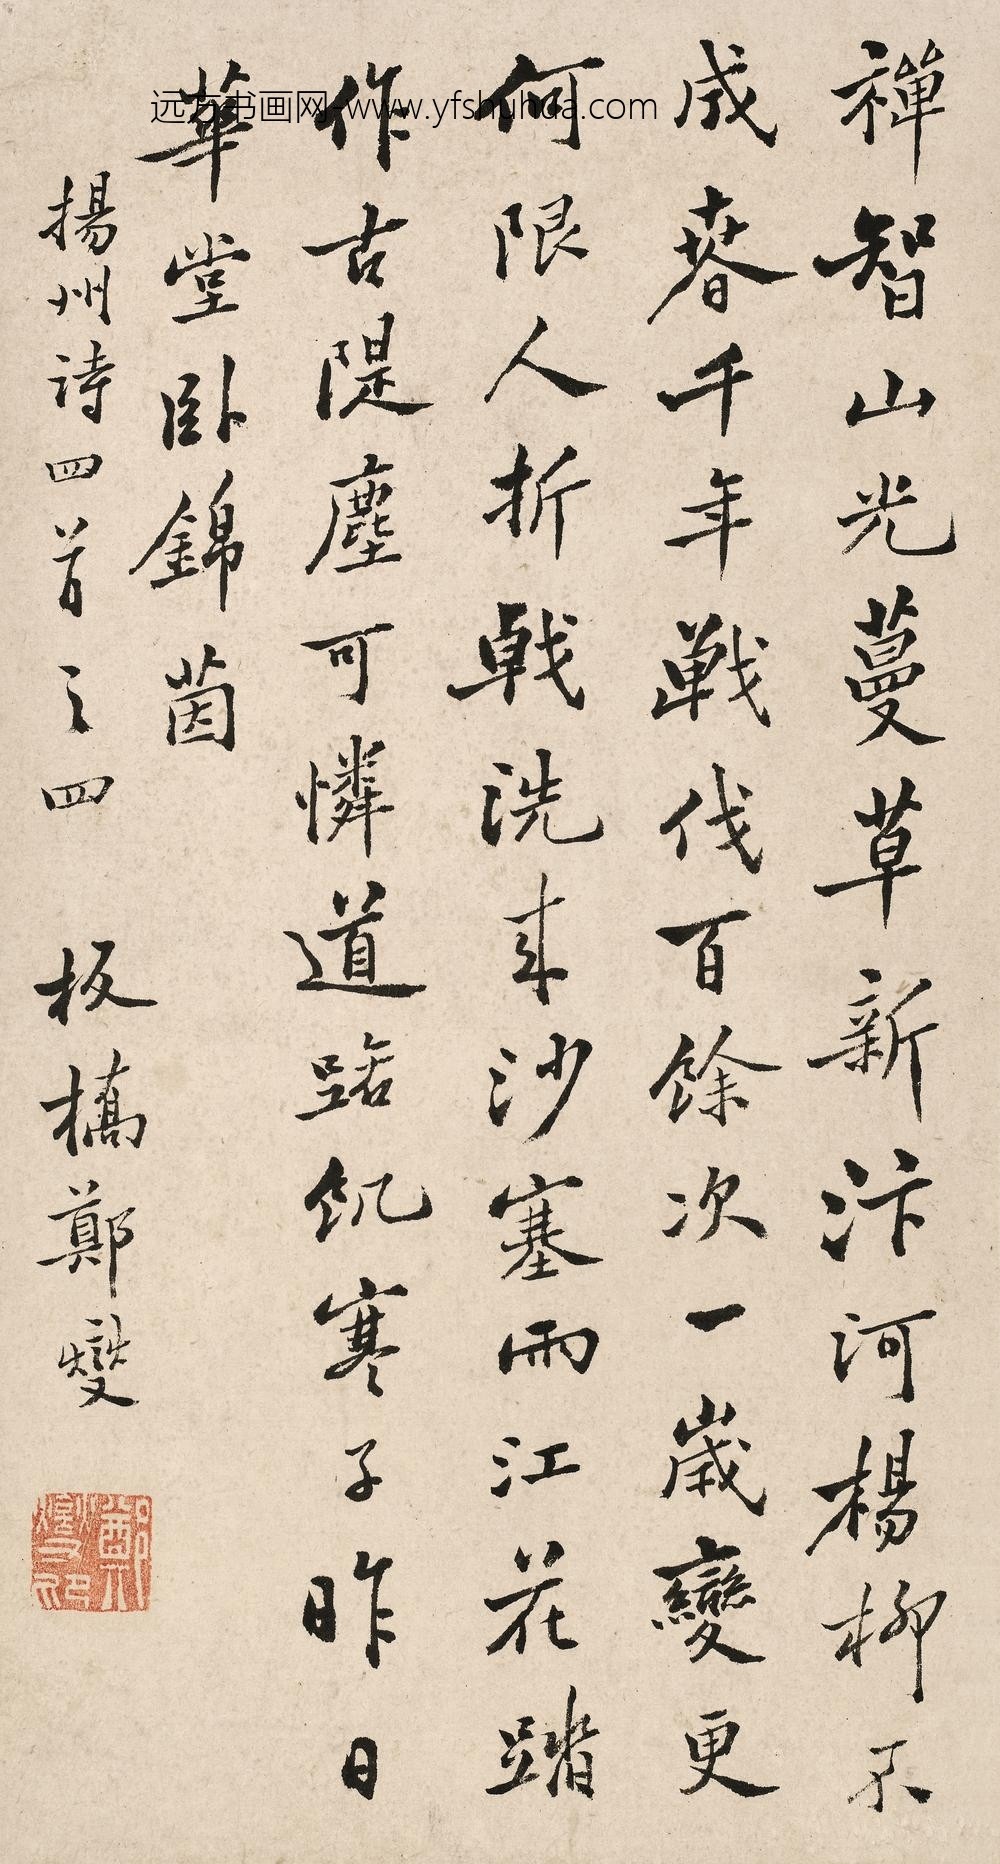 禪智山光蔓草新汴河楊柳不
成春千年戰伐百餘次一歲變更
何限人折戟洗来沙塞雨江花踏
作古隄塵可憐道踣飢寒子昨日
華堂卧錦茵
揚州詩四首之四 板橋鄭燮
鄭燮印
远方书画网-www.yfshuhua.com